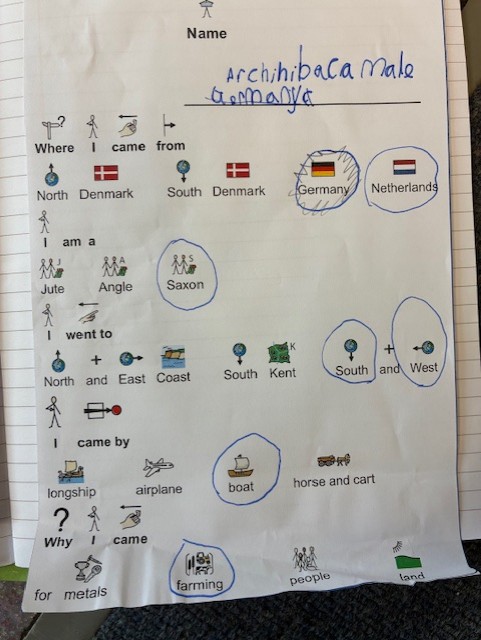 Name
Archihibaca male
Germanya
Where I came from
North Denmark South Denmark Germany Netherlands
I am a
J A S
Jute Angle Saxon
I went to
K
North and East Coast South Kent South and West
I came by
longship airplane boat horse and cart
Why I came
for metals farming people land